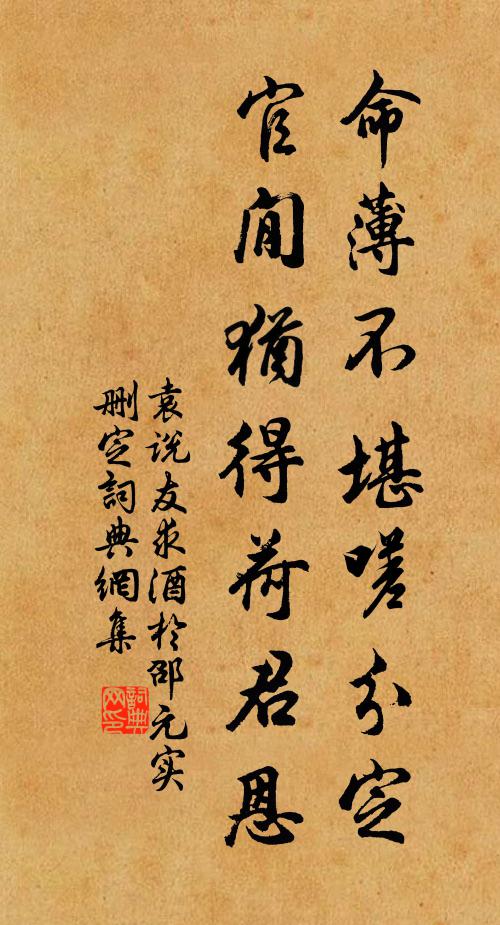 命薄不堪嗟分定
官闲猶得荷君恩
袁说友求酒於邵元实
删定詞典網集
詞典网印